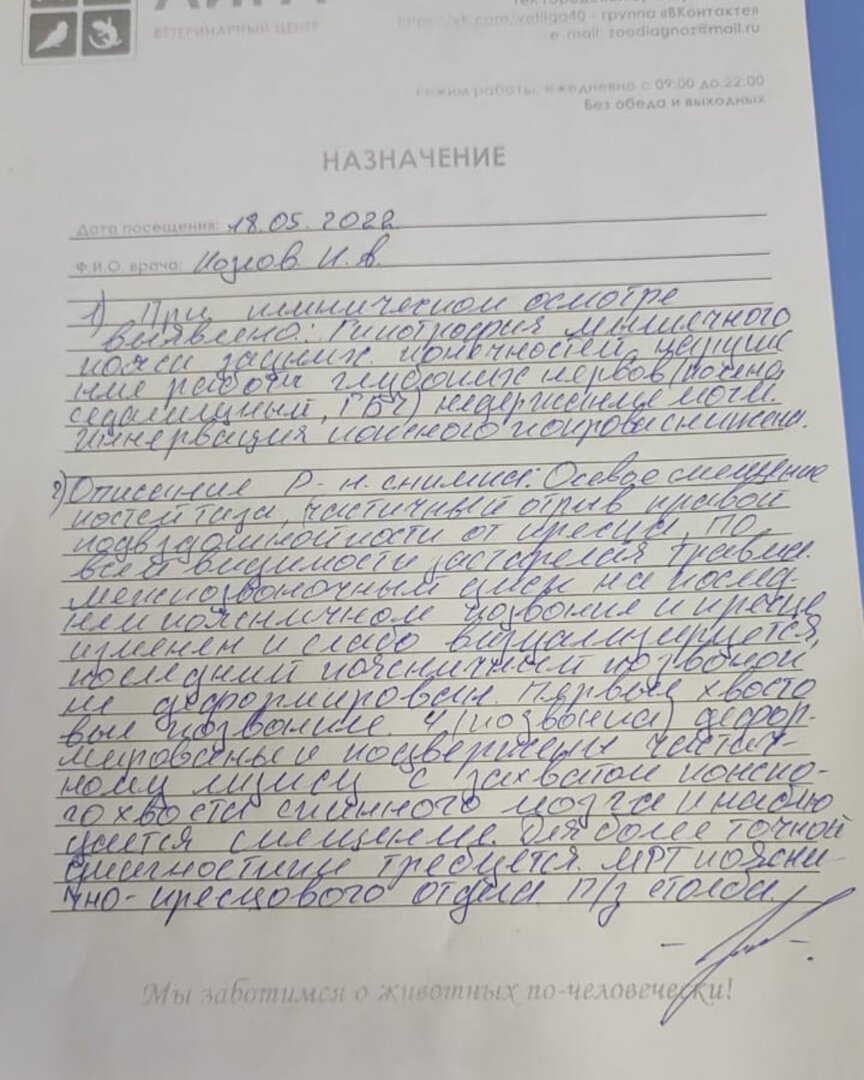 ВЕТЕРИНАРНЫЙ ЦЕНТР
https://vk.com/vetliga40 - группа «ВКонтакте»
e-mail: zoodiagnoz@mail.ru
режим работы: ежедневно с 09:00 до 22:00
Без обеда и выходных
НАЗНАЧЕНИЕ
Дата посещения: 18.05.2022
Ф.И.О. врача: И.А.
1) При клиническом осмотре
выявлено: Гипотрофия мышечного
пояса задних конечностей, наруше
ние работы глубоких нервов
седалищный, недержание мочи.
Иннервация кожного покрова снижена.
2) Описание Р-н. снимка: Осевое смещение
костей таза, частичный отрыв правой
подвздошной кости от крестца, по
всей видимости застарелая травма.
межпозвоночный диск на послед-
нем поясничном позвонке и крестце
изменен и слабо визуализируется,
последний поясничный позвонок
не деформирован. Первые хвосто
вые позвонки 4 (позвонка) дефор-
мированы и подвержены частич-
ному лизису с захватом конско-
го хвоста спинного мозга и наблю
дается смещение. Для более точной
диагностики требуется МРТ поясни-
чно-крестцового отдела п/з столба.
Мы заботимся о животных по-человечески!